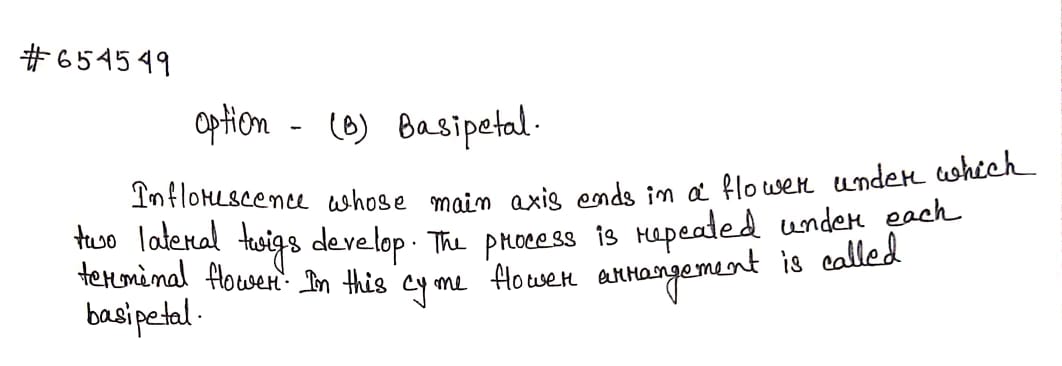 # 654549
option - (B) Basipetal.
Inflorescence whose main axis ends in a flower under which
two lateral twigs develop. The process is repeated under each
terminal flower. In this cyme flower arrangement is called
basipetal.